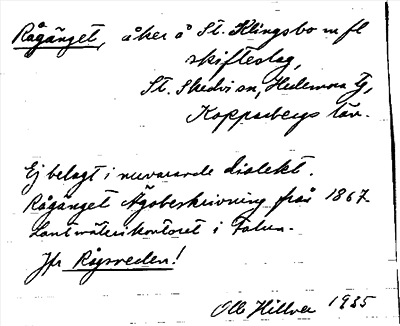 Rågänget, åker å St. Klingsbo m fl
skifteslag,
St. Skedvi sn, Hedemora tg,
Kopparbergs län.
Ej belagt i nuvarande dialekt.
Rågänget Ägobeskrivning från 1867
Lantmäterikontoret i Falun.
Jfr Rågsveden!
Olle Hillver 1935